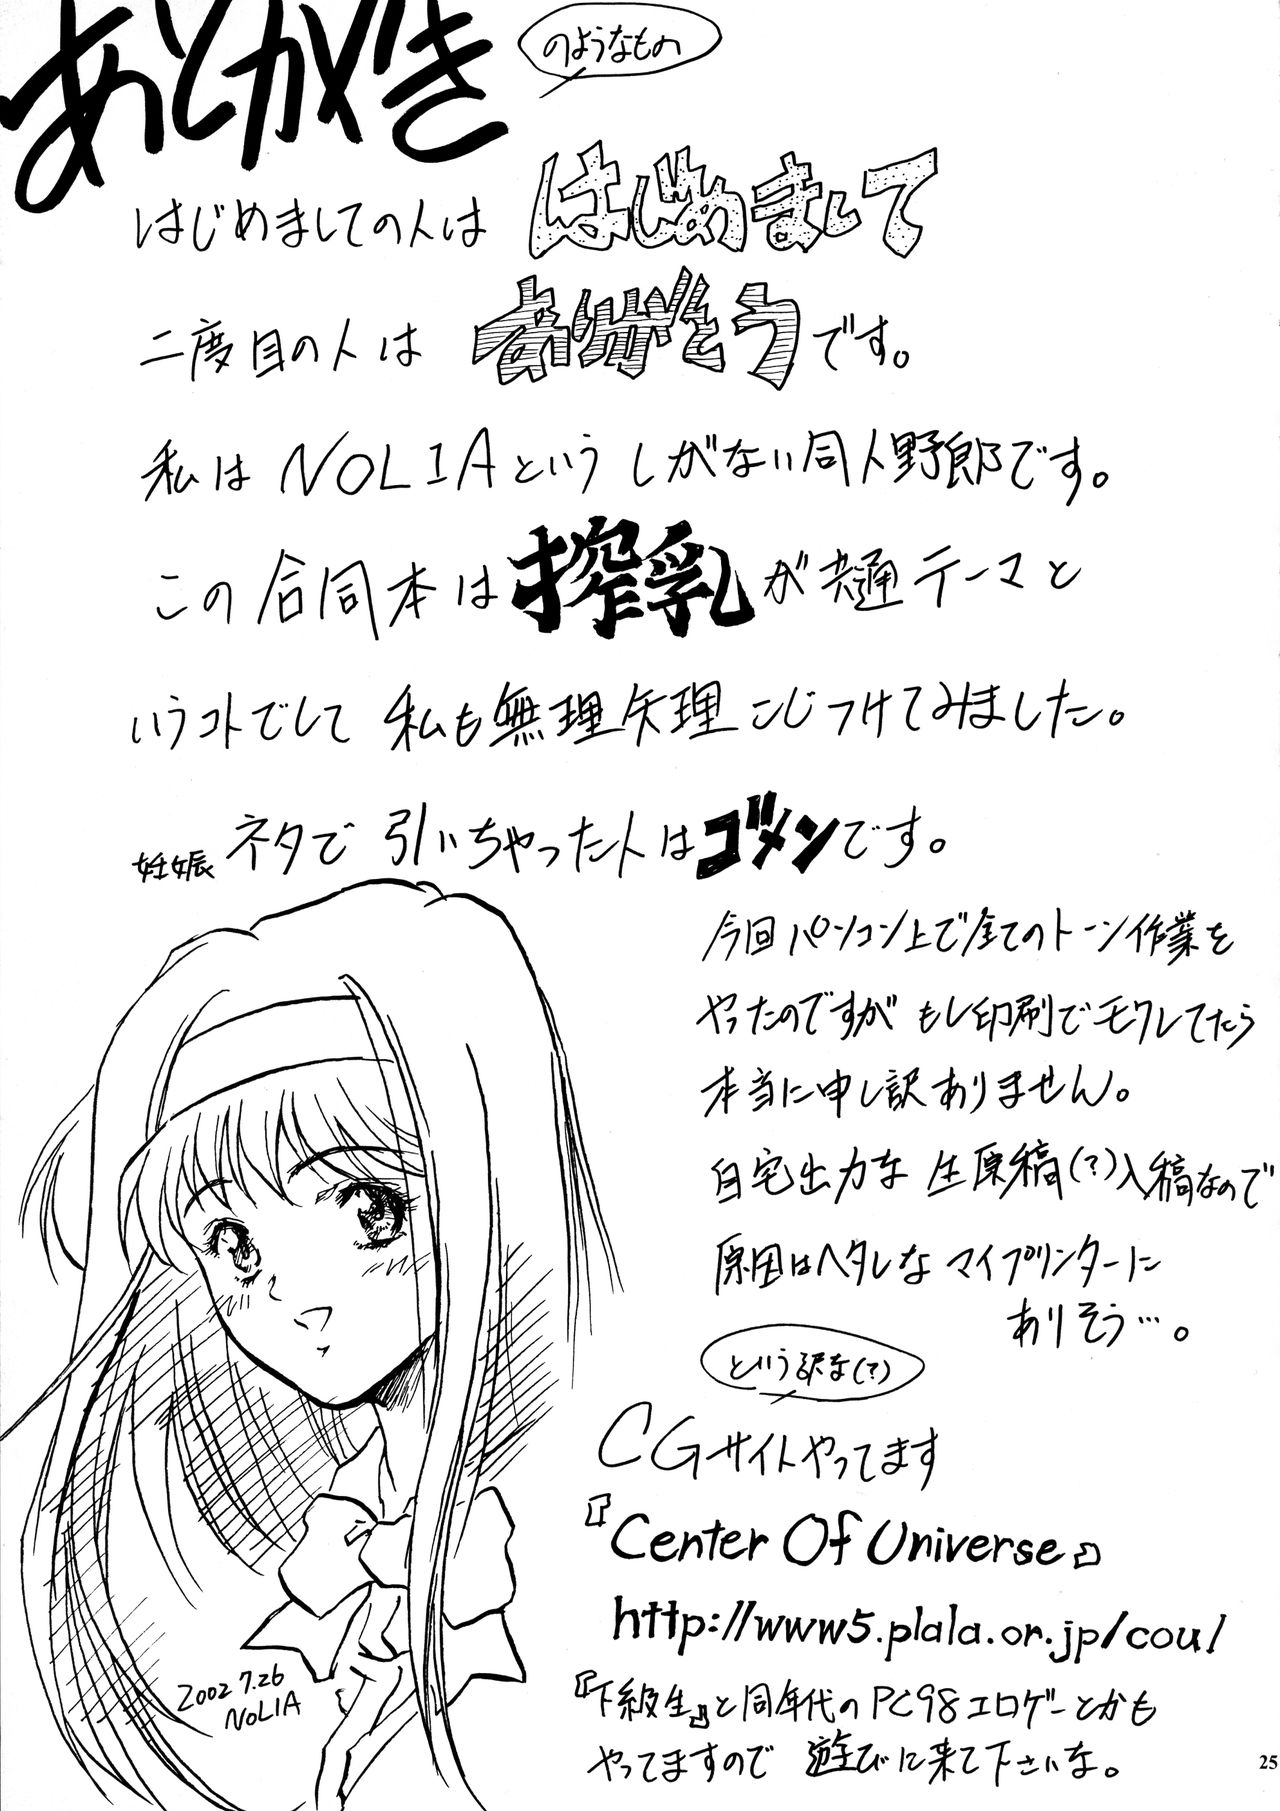 あとがき
のようなもの
はじめましての人は はじめまして
二度目の人は ありがとうです。
私は NOLIAという しがない同人野郎です。
この合同本は搾乳が共通テーマと
いうコトでして 私も無理矢理こじつけてみました。
妊娠ネタで 引いちゃった人はゴメンです。
今回パソコン上で全てのトーン作業を
やったのですが もし印刷でモクレてたら
本当に申し訳ありません。
自宅出力な 生原稿(?)入稿なので
原因はヘタレな マイプリンターに
ありそう…。
という訳な(?)
CGサイトやってます
『Center Of Universe』
http://www5.plala.or.jp/cou/
『下級生』と同年代のPC98エロゲーとかも
やってますので 遊びに来て下さいな。
2002 7.26
NOLIA
25